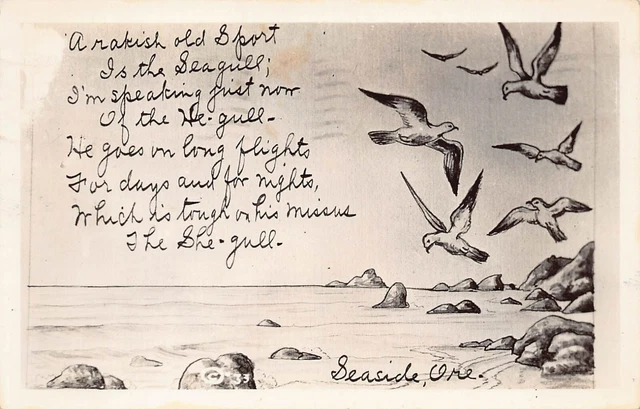 A rakish old Sport
Is the Seagull;
I'm speaking just now
Of the He-gull-
He goes on long flights
For days and for nights,
Which is tough on his missus
The She-gull-
© '33
Seaside, Ore-